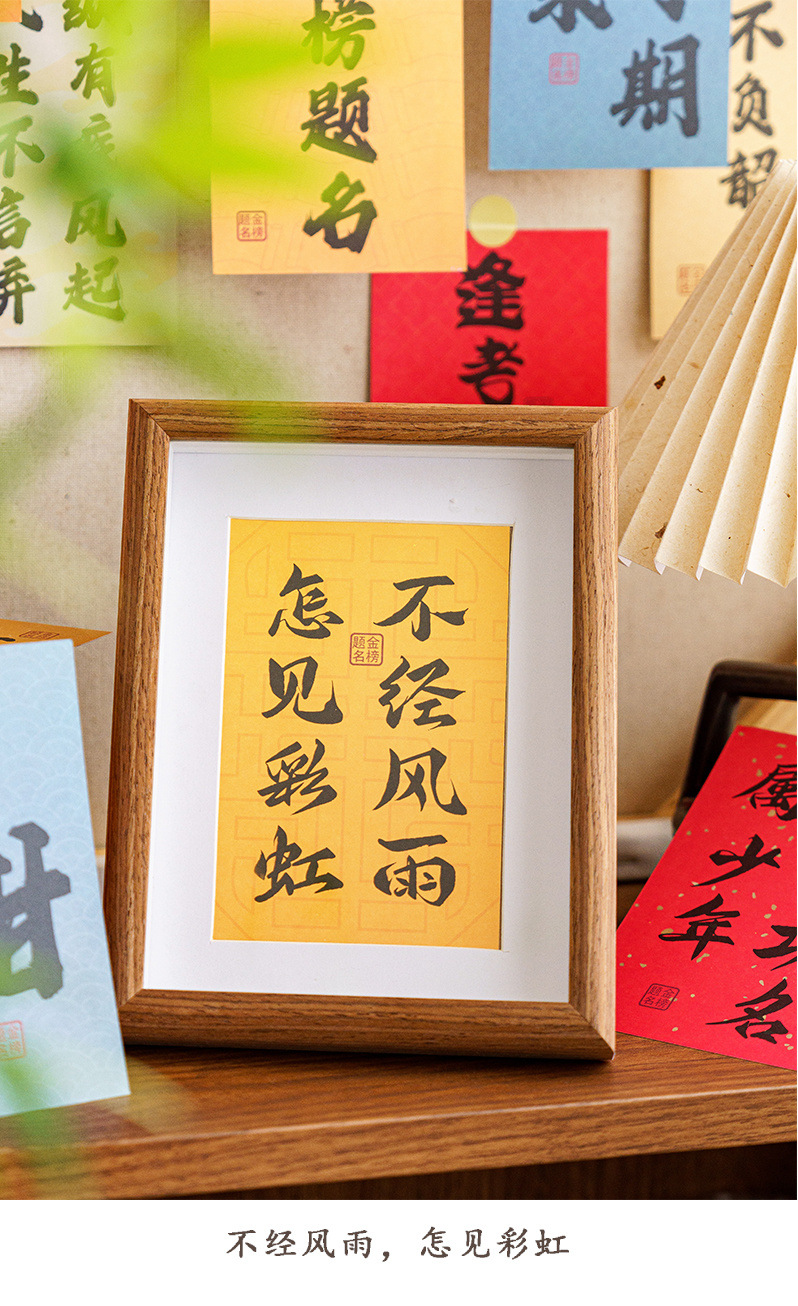 纵有疾风起
生不信弃
榜题名
金榜
题名
期
不负韶
金榜
题名
逢考
不经风雨
怎见彩虹
金榜
题名
属
少年
功名
金榜
题名
不经风雨，怎见彩虹